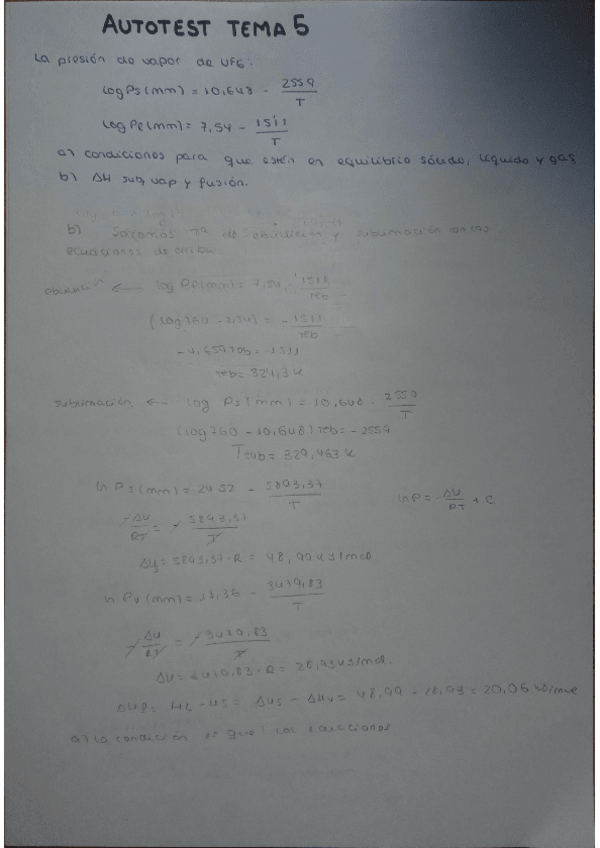 AUTOTEST TEMA 5
La presión de vapor de UF6:
log Ps (mm) = 10,648 - 2559/T
log Pe (mm) = 7,54 - 1511/T
a) condiciones para que estén en equilibrio sólido, líquido y gas
b) ΔH sub, vap y fusión.
b) Sacamos Tª de ebullición y sublimación con las
ecuaciones de arriba
ebullición ← log Pe (mm) = 7,54 - 1511/Teb
(log 760 - 7,54) = - 1511/Teb
- 4,659 Teb = - 1511
Teb = 324,3 K
sublimación ← log Ps (mm) = 10,648 - 2559/T
(log 760 - 10,648) Teb = - 2559
Tsub = 329,463 K
ln Ps (mm) = 24,52 - 5893,37/T
ln P = - ΔH/RT + C
- ΔH/RT = - 5893,37/T
ΔHs = 5893,37 · R = 48,99 kJ/mol
ln Pv (mm) = 17,36 - 3479,83/T
- ΔH/RT = - 3479,83/T
ΔH = 3479,83 · R = 28,93 kJ/mol.
= ΔHs - ΔHv = 48,99 - 28,93 = 20,06 kJ/mol
a) La condición es que las